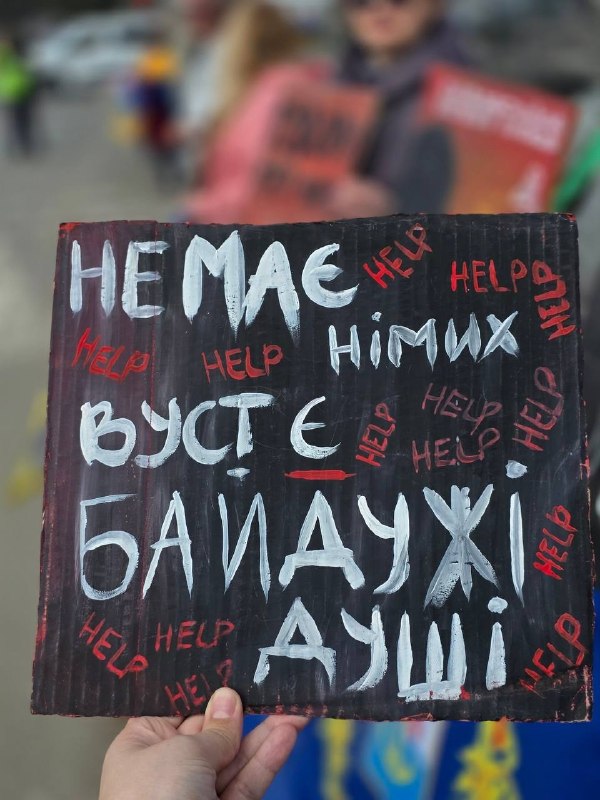 НЕ МАЄ
HELP
HELP
HELP
НІМИХ
HELP
HELP
ВУСТ Є
HELP
HELP
HELP
HELP
БАЙДУЖІ
HELP
ДУШІ
HELP
HELP
HELP
HELP